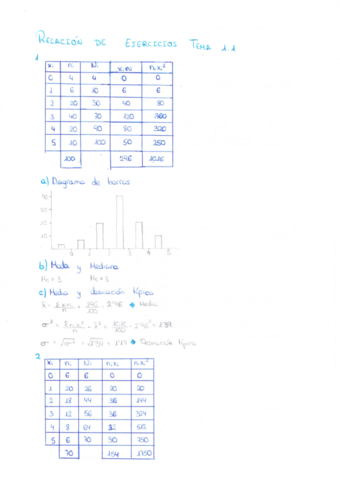 RELACIÓN DE EJERCICIOS TEMA 1.1
1
xi ni Ni xi.ni nixi²
0 4 4 0 0
1 6 10 6 6
2 20 30 40 80
3 40 70 120 360
4 20 90 80 320
5 10 100 50 250
100 296 1016
a) Diagrama de barras
0 1 2 3 4 5
b) Moda y Mediana
c) Media y desviación típica
Media
Desviación típica
2
xi ni Ni nixi nixi²
0 6 6 0 0
1 20 26 20 20
2 18 44 36 144
3 12 56 36 324
4 8 64 32 512
5 6 70 30 750
70 154 1750